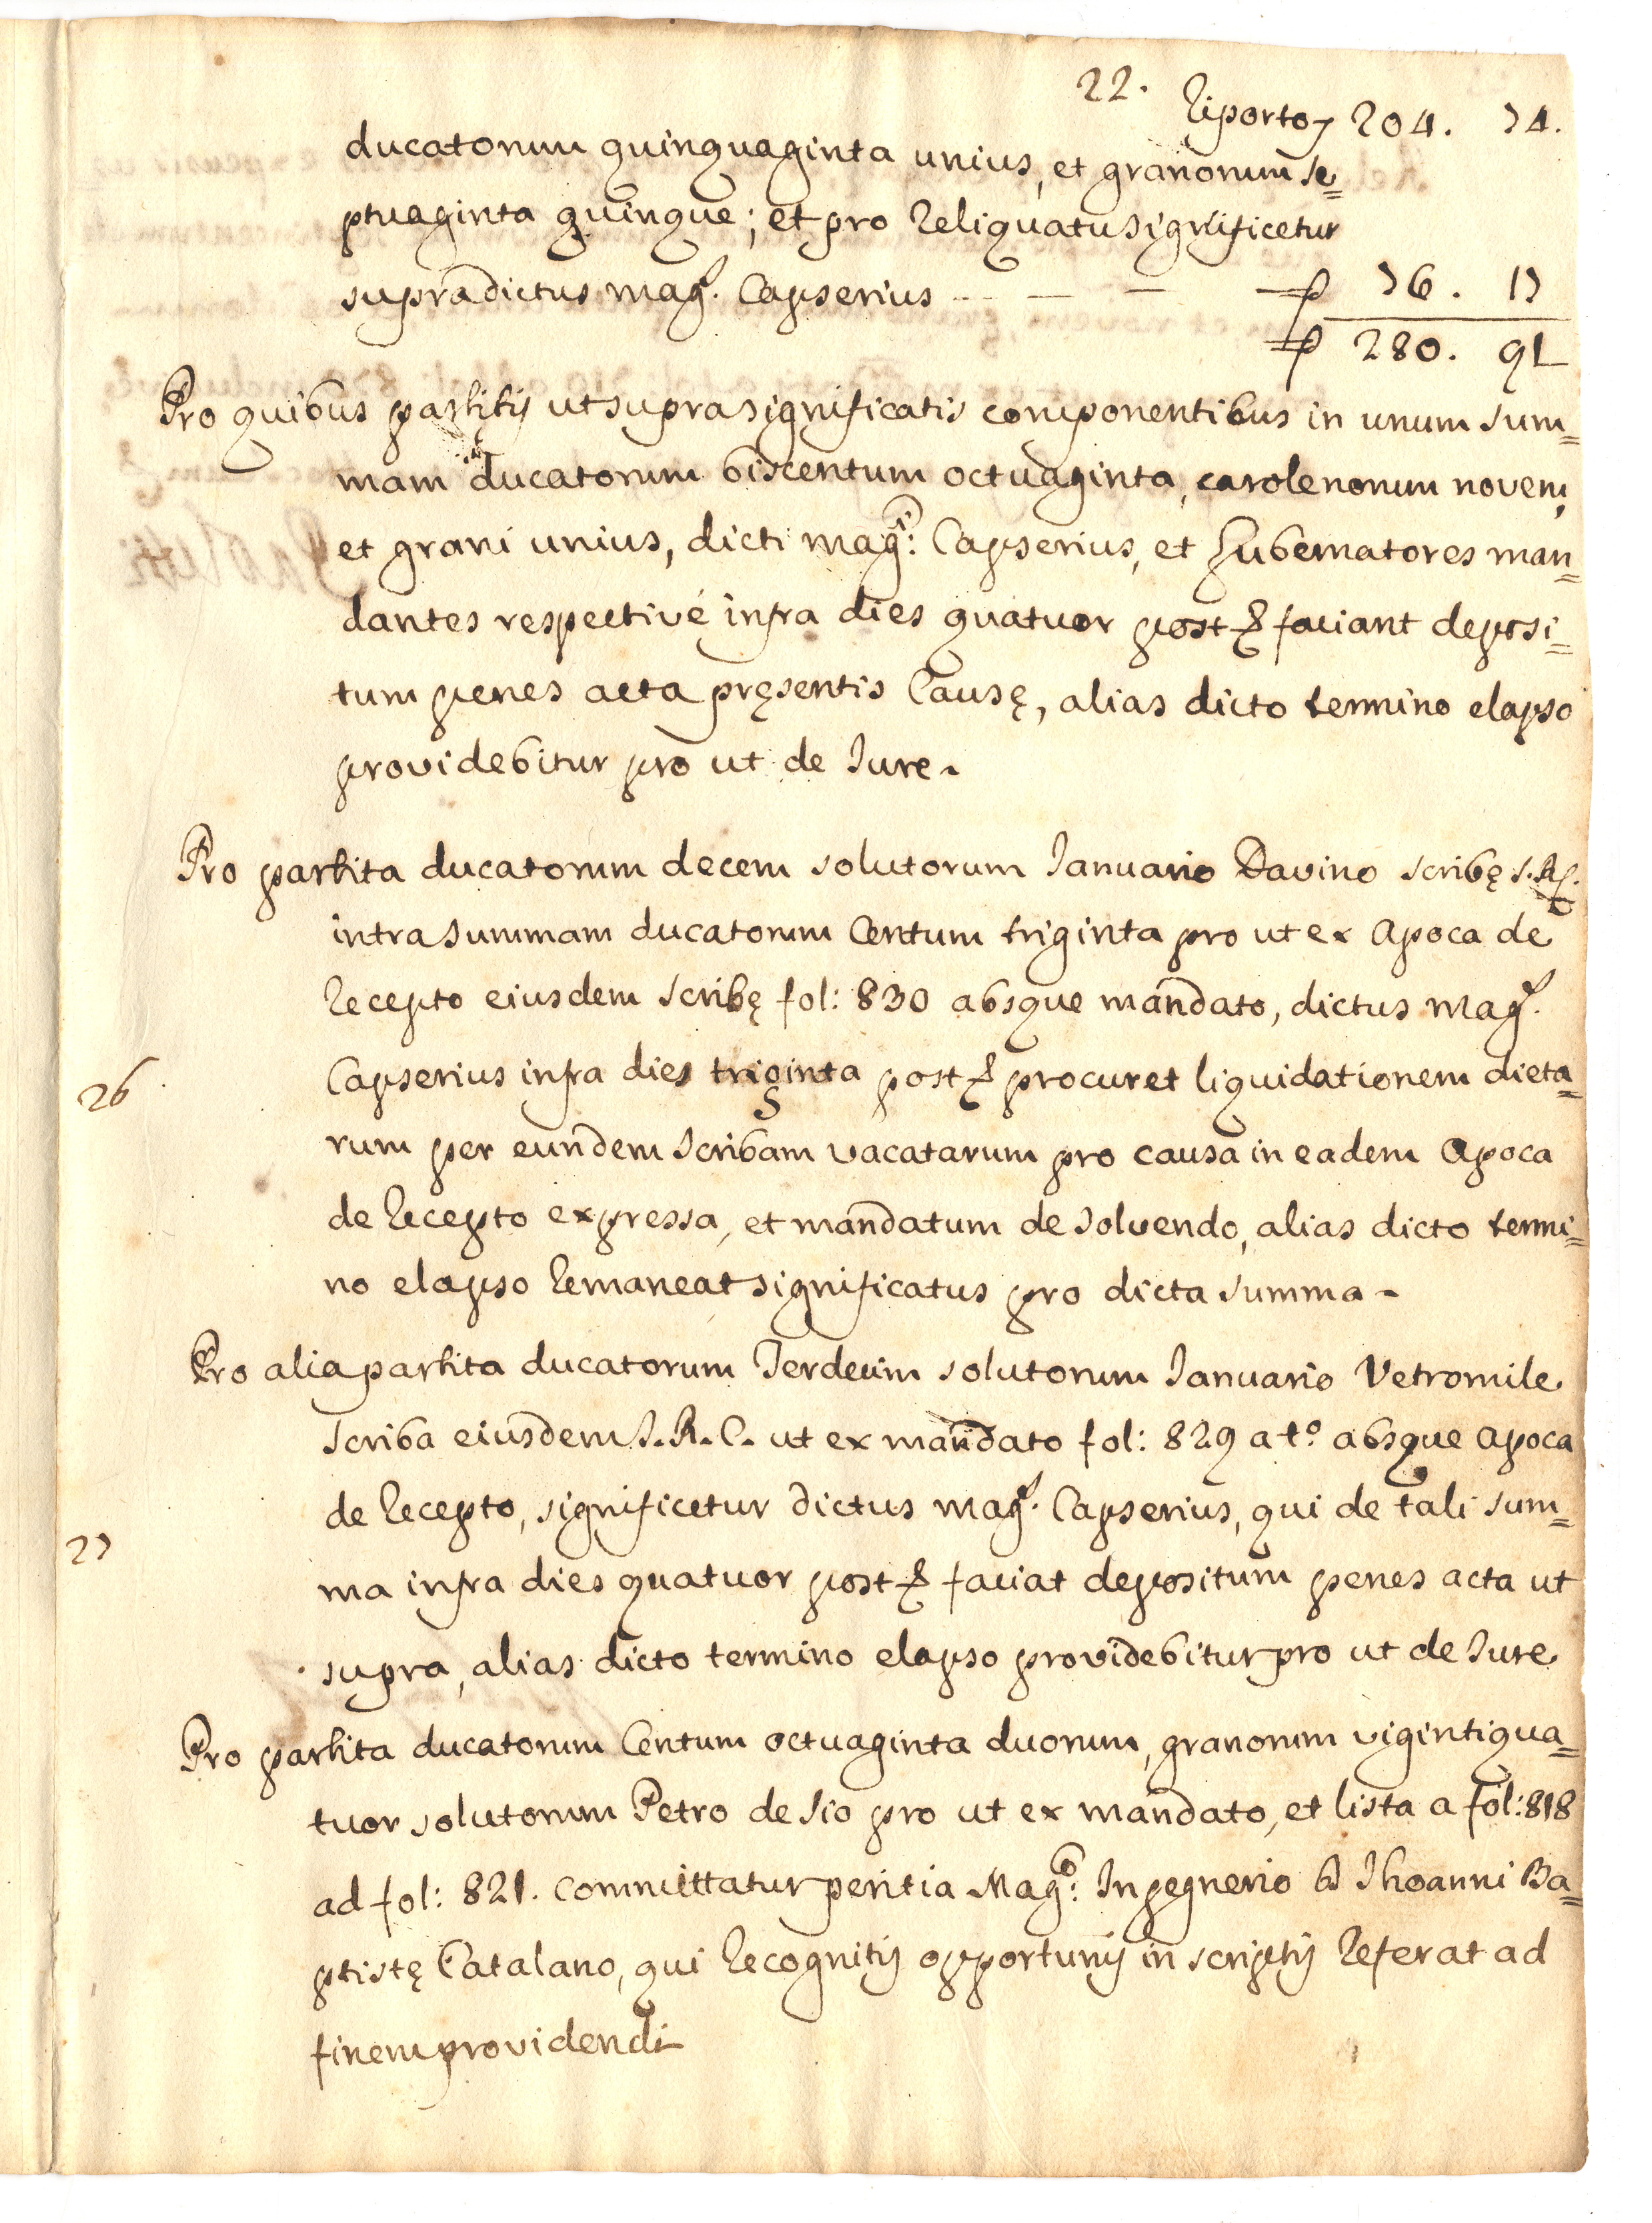 22.
Riporto 204. 74.
ducatorum quinquaginta unius, et granorum se=
ptuaginta quinque; et pro reliquatu significetur
supradictus Mag.r Capserius - - - 76. 17
280. 91
Pro quibus partitis ut supra significatis componentibus in unum sum=
mam ducatorum biscentum octuaginta, carolenorum novem,
et grani unius, dicti Mag.ci: Capserius, et Gubernatores man=
dantes respectivé infra dies quatuor post & faciant deposi=
tum penes acta pręsentis Causę, alias dicto termino elapso
providebitur pro ut de Iure.
Pro partita ducatorum decem solutorum Ianuario Davino scribę S.R.C.
intra summam ducatorum Centum triginta pro ut ex Apoca de
recepto eiusdem scribę fol: 830 absque mandato, dictus Mag.r
26. Capserius infra dies triginta post & procuret liquidationem dieta=
rum per eundem scribam vacatarum pro causa in eadem Apoca
de recepto expressa, et mandatum de solvendo, alias dicto termi=
no elapso remaneat significatus pro dicta summa.
Pro alia partita ducatorum Terdecim solutorum Ianuario Vetromile
scriba eiusdem S.R.C. ut ex mandato fol: 829 a t.o absque apoca
de recepto, significetur dictus Mag.r Capserius, qui de tali sum=
27 ma infra dies quatuor post & faciat depositum penes acta ut
supra, alias dicto termino elapso providebitur pro ut de Iure
Pro partita ducatorum Centum octuaginta duorum, granorum vigintiqua=
tuor solutorum Petro de Sio pro ut ex mandato, et lista a fol: 818
ad fol: 821. committatur peritia Mag.co: Ingegnerio D Ihoanni Ba=
ptistę Catalano, qui recognitis opportunis in scriptis referat ad
finem providendi